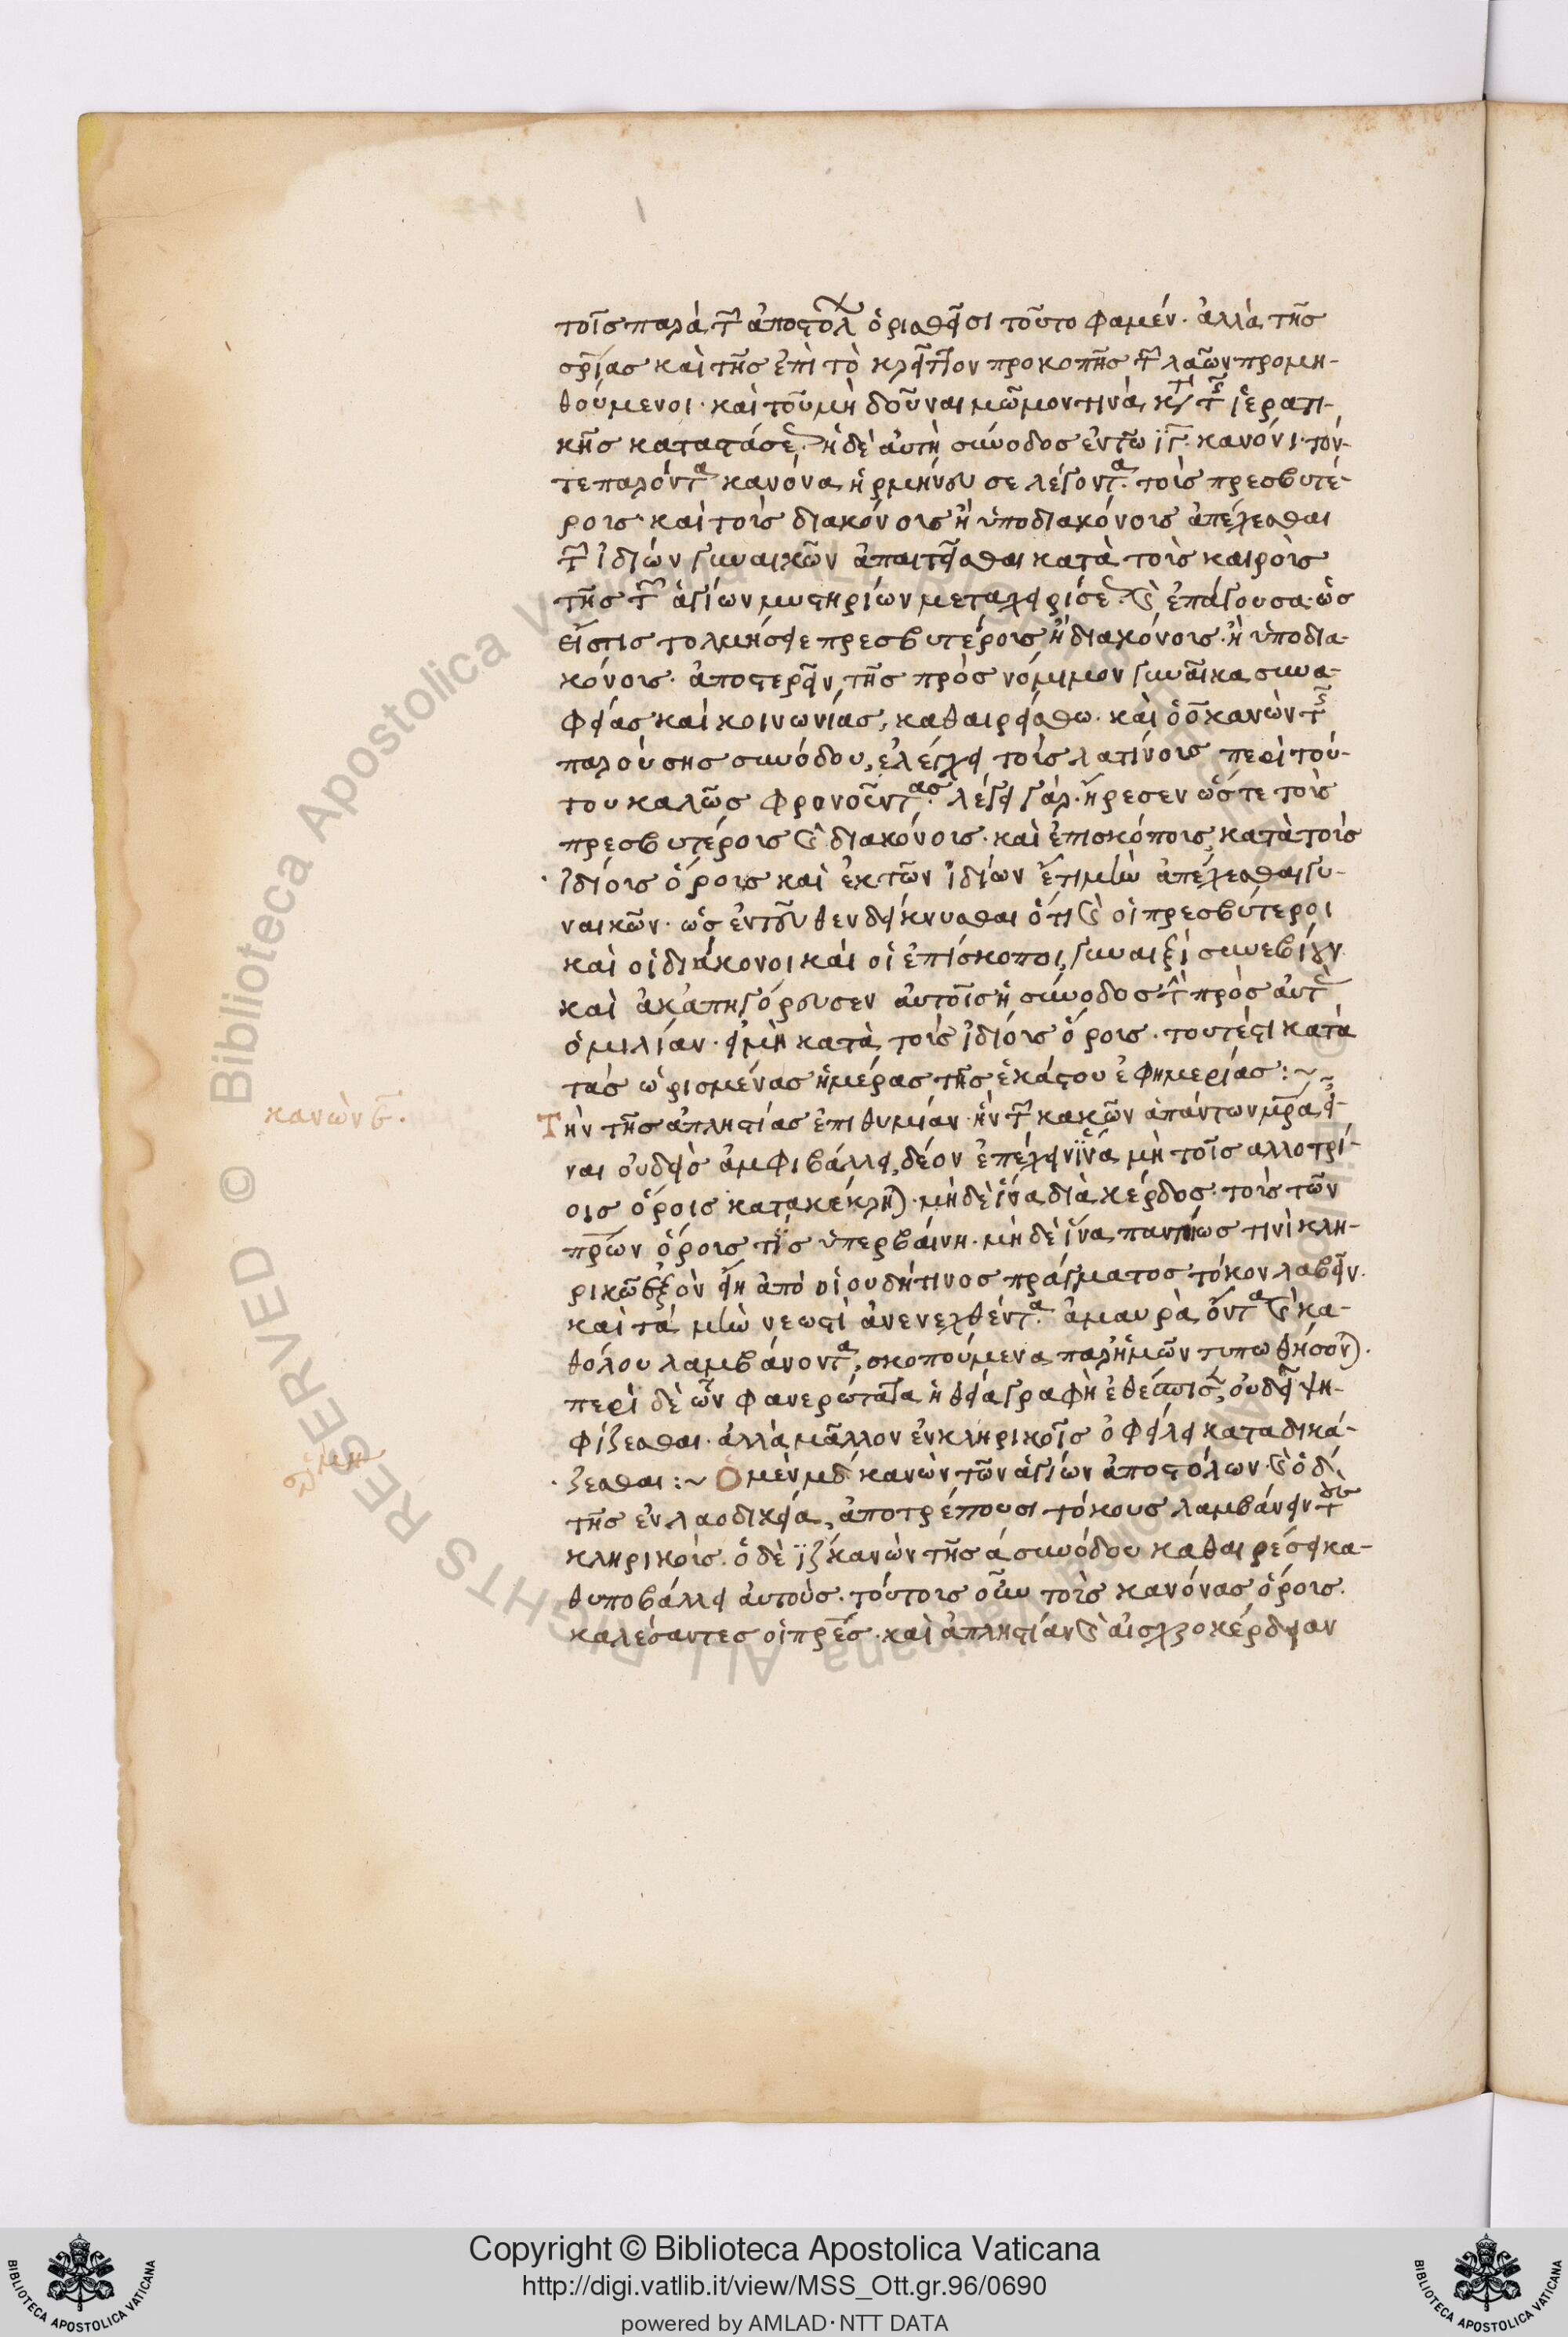 τοῖς παρὰ τῶν ἀποστόλ ὁρισθεῖσι τοῦτο φαμέν· ἀλλὰ τῆς
σρίας καὶ τῆς ἐπὶ τὸ κρεῖττον προκοπῆς τῶν λαῶν προμη-
θούμενοι· καὶ τοῦ μὴ δοῦναι μῶμον τινὰ κατὰ τῆς ἱερατι-
κῆς καταστάσεως· ἡ δὲ αὐτὴ σύνοδος ἐν τῶ ιγ κανόνι· τόν-
τε παρόντα κανόνα ἡρμήνευσε λέγοντα· τοὺς πρεσβυτέ-
ρους· καὶ τοὺς διακόνους ἢ ὑποδιακόνους ἀπέχεσθαι
τῶν ἰδίων γυναικῶν ἀπαιτεῖσθαι κατὰ τοὺς καιροὺς
τῆς τῶν ἁγίων μυστηρίων μεταχειρίσεως καὶ ἐπάγουσα· ὡς
εἴ τις τολμήσει πρεσβυτέρους ἢ διακόνους· ἢ ὑποδια-
κόνους· ἀποστερεῖν τῆς πρὸς νόμιμον γυναῖκα συνα-
φείας καὶ κοινωνίας, καθαιρείσθω· καὶ ὁ ο κανὼν τῆς
παρούσης συνόδου, ἐλέγχει τοὺς λατίνους περὶ τού-
του καλῶς φρονοῦντας· λέγει γάρ· ἤρεσεν ὥστε τοὺς
πρεσβυτέρους καὶ διακόνους· καὶ ἐπισκόπους κατὰ τοὺς
ἰδίους ὅρους καὶ ἐκ τῶν ἰδίων ἔτι μὴν ἀπέχεσθαι γυ-
ναικῶν· ὡς ἐντεῦθεν δείκνυσθαι ὅτι καὶ οἱ πρεσβύτεροι
καὶ οἱ διάκονοι καὶ οἱ ἐπίσκοποι, γυναιξὶ συνεβίουν
καὶ οὐκ ἀπηγόρευσεν αὐτοῖς ἡ σύνοδος τὴν πρὸς αὐτὰς
ὁμιλίαν· εἰ μὴ κατὰ τοὺς ἰδίους ὅρους· τουτέστι κατὰ
τὰς ὡρισμένας ἡμέρας τῆς ἑκάστου ἐφημερίας :~
κανὼν ε.
Τὴν τῆς ἀπληστίας ἐπιθυμίαν· ἣν τῶν κακῶν ἁπάντων μρα εἶ-
ναι οὐδεὶς ἀμφιβάλλει, δέον ἐπέχειν ἵνα μὴ τοῖς αλλοτρί-
οις ὅροις κατακέκληται· μὴ δὲ ἵνα διὰ κέρδος· τοὺς τῶν
πρων ὅρους τὶς ὑπερβαίνη· μὴ δὲ ἵνα παντοίως τινὶ κλη-
ρικῶ ἐξὸν εἴη ἀπὸ οἱουδήτινος πράγματος τόκον λαβεῖν.
καὶ τὰ μὴν νεωστὶ ἀνενεχθέντα· ἀμαυρὰ ὄντα καὶ κα-
θόλου λαμβάνοντα, σκοπούμενα παρ' ἡμῶν τυπωθήσονται.
περὶ δὲ ὧν φανερώτατα ἡ θεία γραφὴ ἐθέσπισεν, οὐ δεῖ ψη-
φίζεσθαι· ἀλλὰ μᾶλλον ἐν κληρικοῖς ὀφείλει καταδικά-
ζεσθαι :~ Ὁ μὲν μδ κανὼν τῶν ἁγίων ἀποστόλων· καὶ ὁ δ
τῆς ἐν λαοδικεία, ἀποτρέπουσι τόκους λαμβάνειν τοὺς
κληρικούς· ὁ δὲ ιζ κανὼν τῆς α συνόδου καθαιρέσει κα-
θυποβάλλει αὐτούς· τούτους οὖν τοὺς κανόνας ὅρους
καλέσαντες οἱ πρες· καὶ ἀπληστίαν καὶ αἰσχροκέρδειαν
Copyright © Biblioteca Apostolica Vaticana
http://digi.vatlib.it/view/MSS_Ott.gr.96/0690
powered by AMLAD·NTT DATA
BIBLIOTECA APOSTOLICA VATICANA
BIBLIOTECA APOSTOLICA VATICANA
© Biblioteca Apostolica Vaticana ALL RIGHTS RESERVED